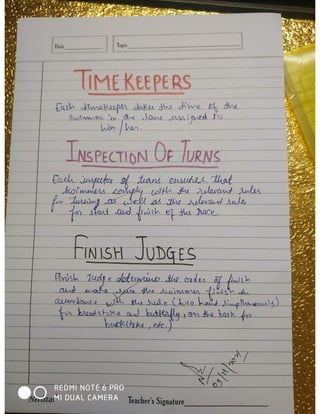 Date
Topic
TIMEKEEPERS
Each timekeeper takes the time of the
swimmer in the lane assigned to
him/her.
INSPECTION OF TURNS
Each inspector of turns ensures that
swimmers comply with the relevant rules
for turning as well as the relevant rules
for start and finish of the race.
FINISH JUDGES
Finish Judge determine the order of finish
and make sure the swimmers finish in
accordance with the rule (two hand simultaneously
for breaststroke and butterfly, on the back for
backstroke, etc.)
REDMI NOTE 6 PRO
MI DUAL CAMERA
Teacher's Signature